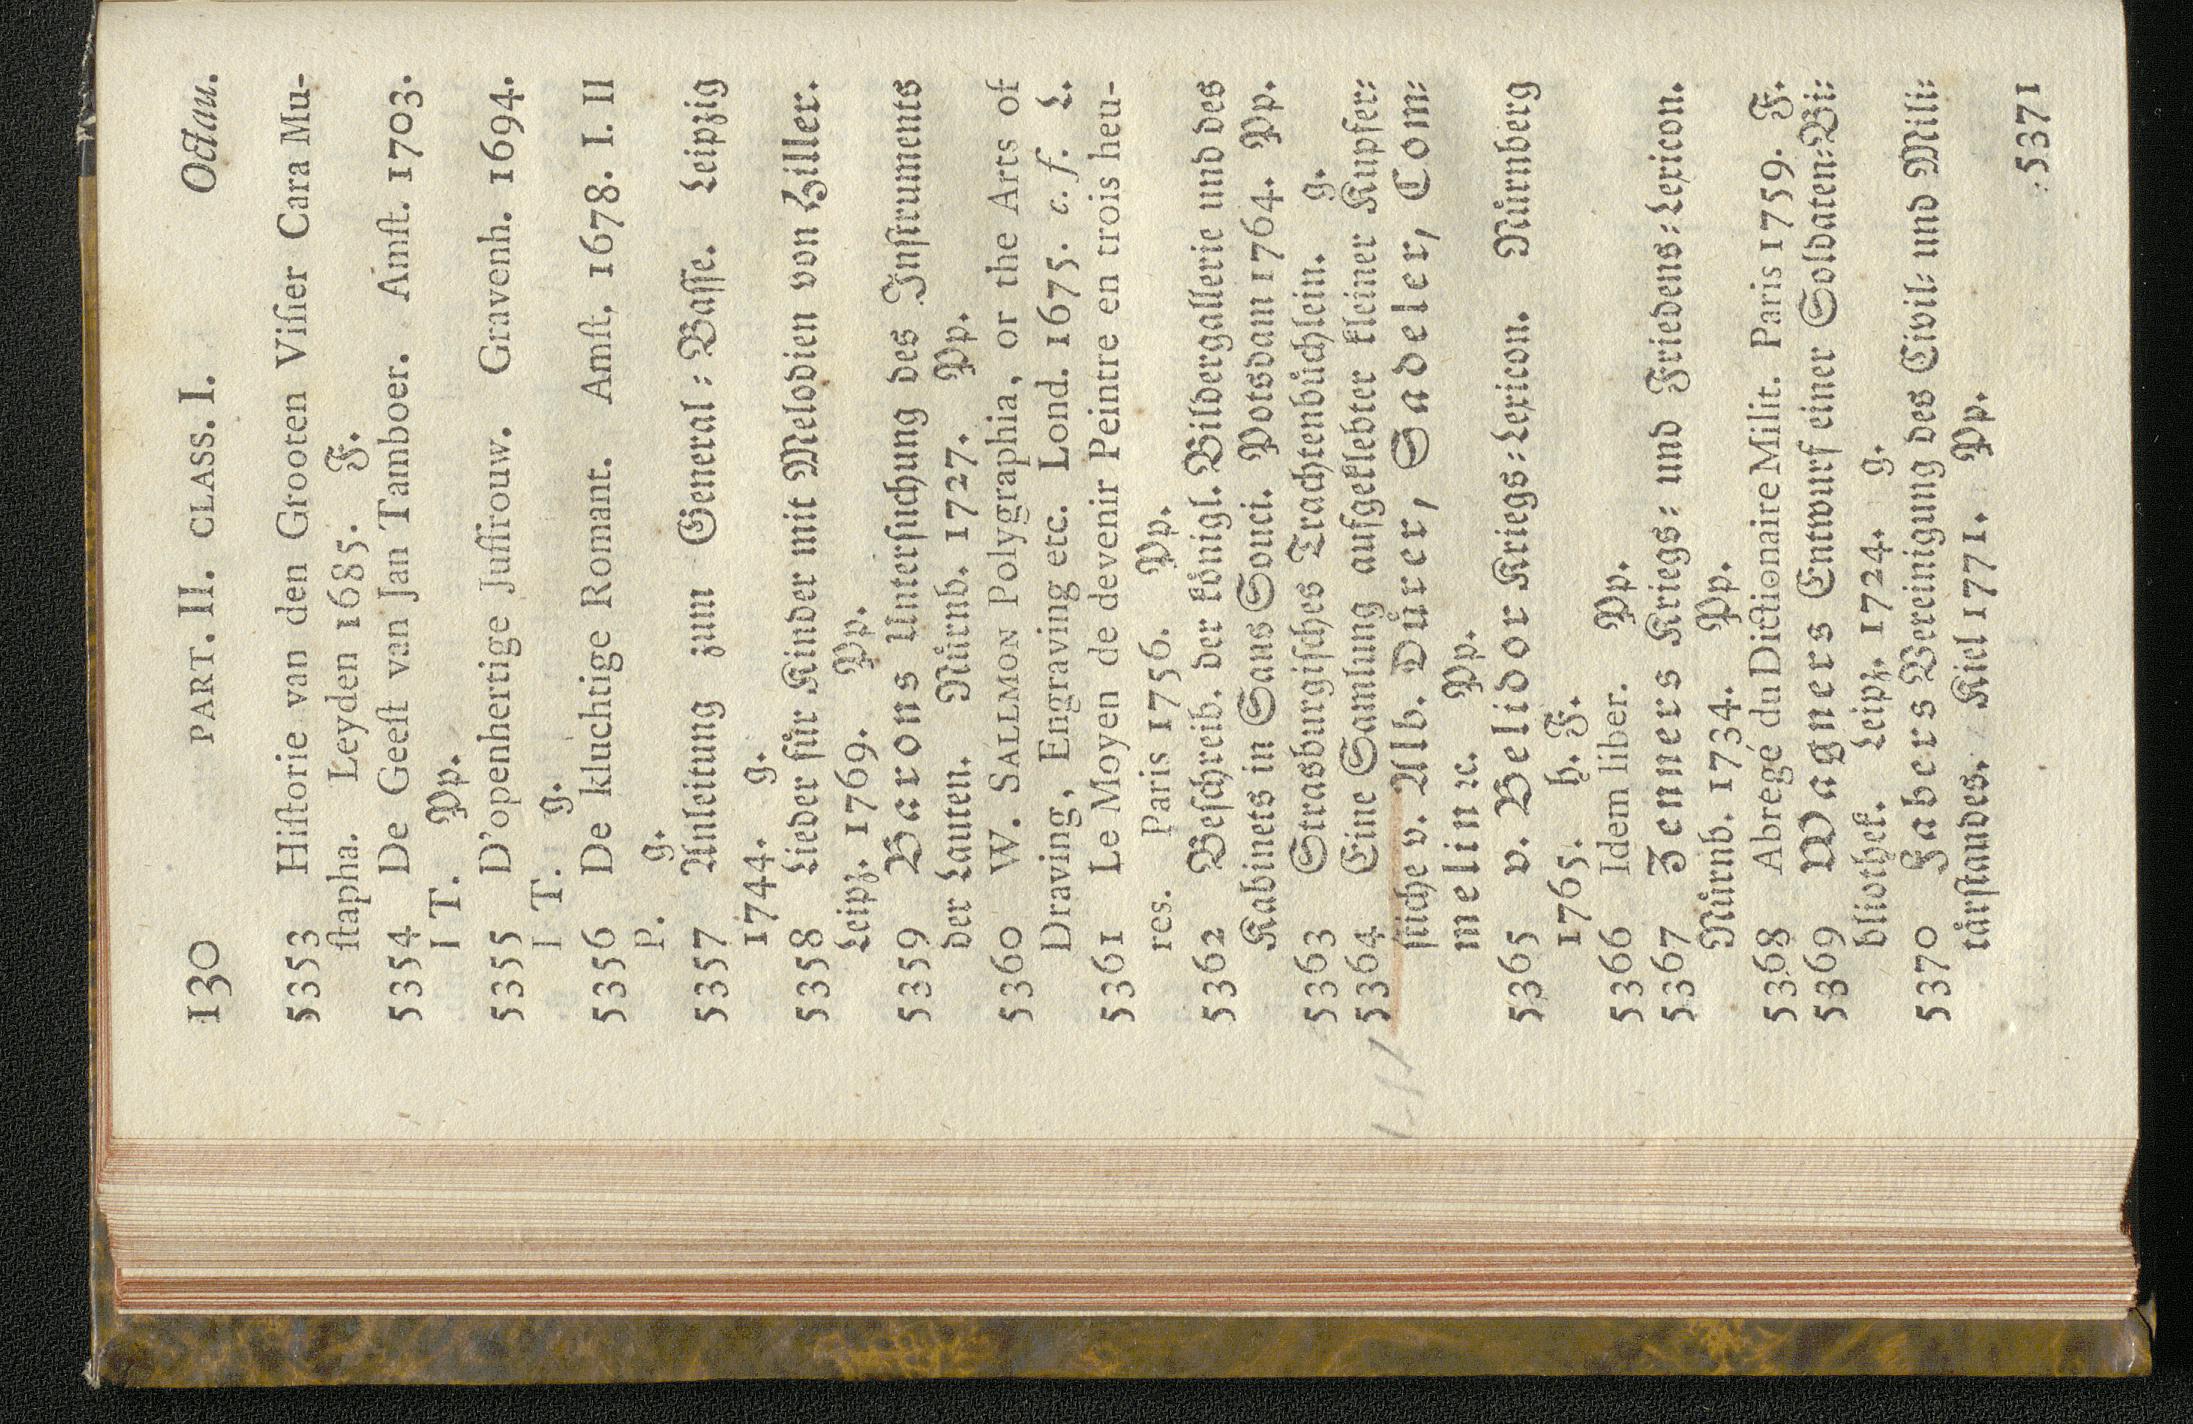 130 PART. II. CLASS. I. Octau.
5353 Hiſtorie van den Grooten Viſier Cara Mu-
ſtapha. Leyden 1685. F.
5354 De Geeſt van Jan Tamboer. Amſt. 1703.
I T. Pp.
5355 D'openhertige Juffrouw. Gravenh. 1694.
I T. g.
5356 De kluchtige Romant. Amſt. 1678. I. II
P. g.
5357 Anleitung zum General⸗Baſſe. Leipzig
1744. g.
5358 Lieder fuͤr Kinder mit Melodien von Hiller.
Leipz. 1769. Pp.
5359 Barons Unterſuchung des Inſtruments
der Lauten. Nuͤrnb. 1727. Pp.
5360 W. SALLMON Polygraphia, or the Arts of
Draving, Engraving etc. Lond. 1675. c. f. L.
5361 Le Moyen de devenir Peintre en trois heu-
res. Paris 1756. Pp.
5362 Beſchreib. der koͤnigl. Bildergallerie und des
Kabinets in Sans Souci. Potsdam 1764. Pp.
5363 Strasburgiſches Trachtenbuͤchlein. g.
5364 Eine Samlung aufgeklebter kleiner Kupfer⸗
ſtiche v. Alb. Duͤrer, Sadeler, Com⸗
melin ꝛc. Pp.
5365 v. Belidor Kriegs⸗Lexicon. Nuͤrnberg
1765. h. F.
5366 Idem liber. Pp.
5367 Zenners Kriegs⸗ und Friedens⸗Lexicon.
Nuͤrnb. 1734. Pp.
5368 Abregé du Dictionaire Milit. Paris 1759. F.
5369 Wagners Entwurf einer Soldaten⸗Bi⸗
bliothek. Leipz. 1724. g.
5370 Fabers Vereinigung des Civil⸗ und Mili⸗
taͤrſtandes. Kiel 1771. Pp.
5371